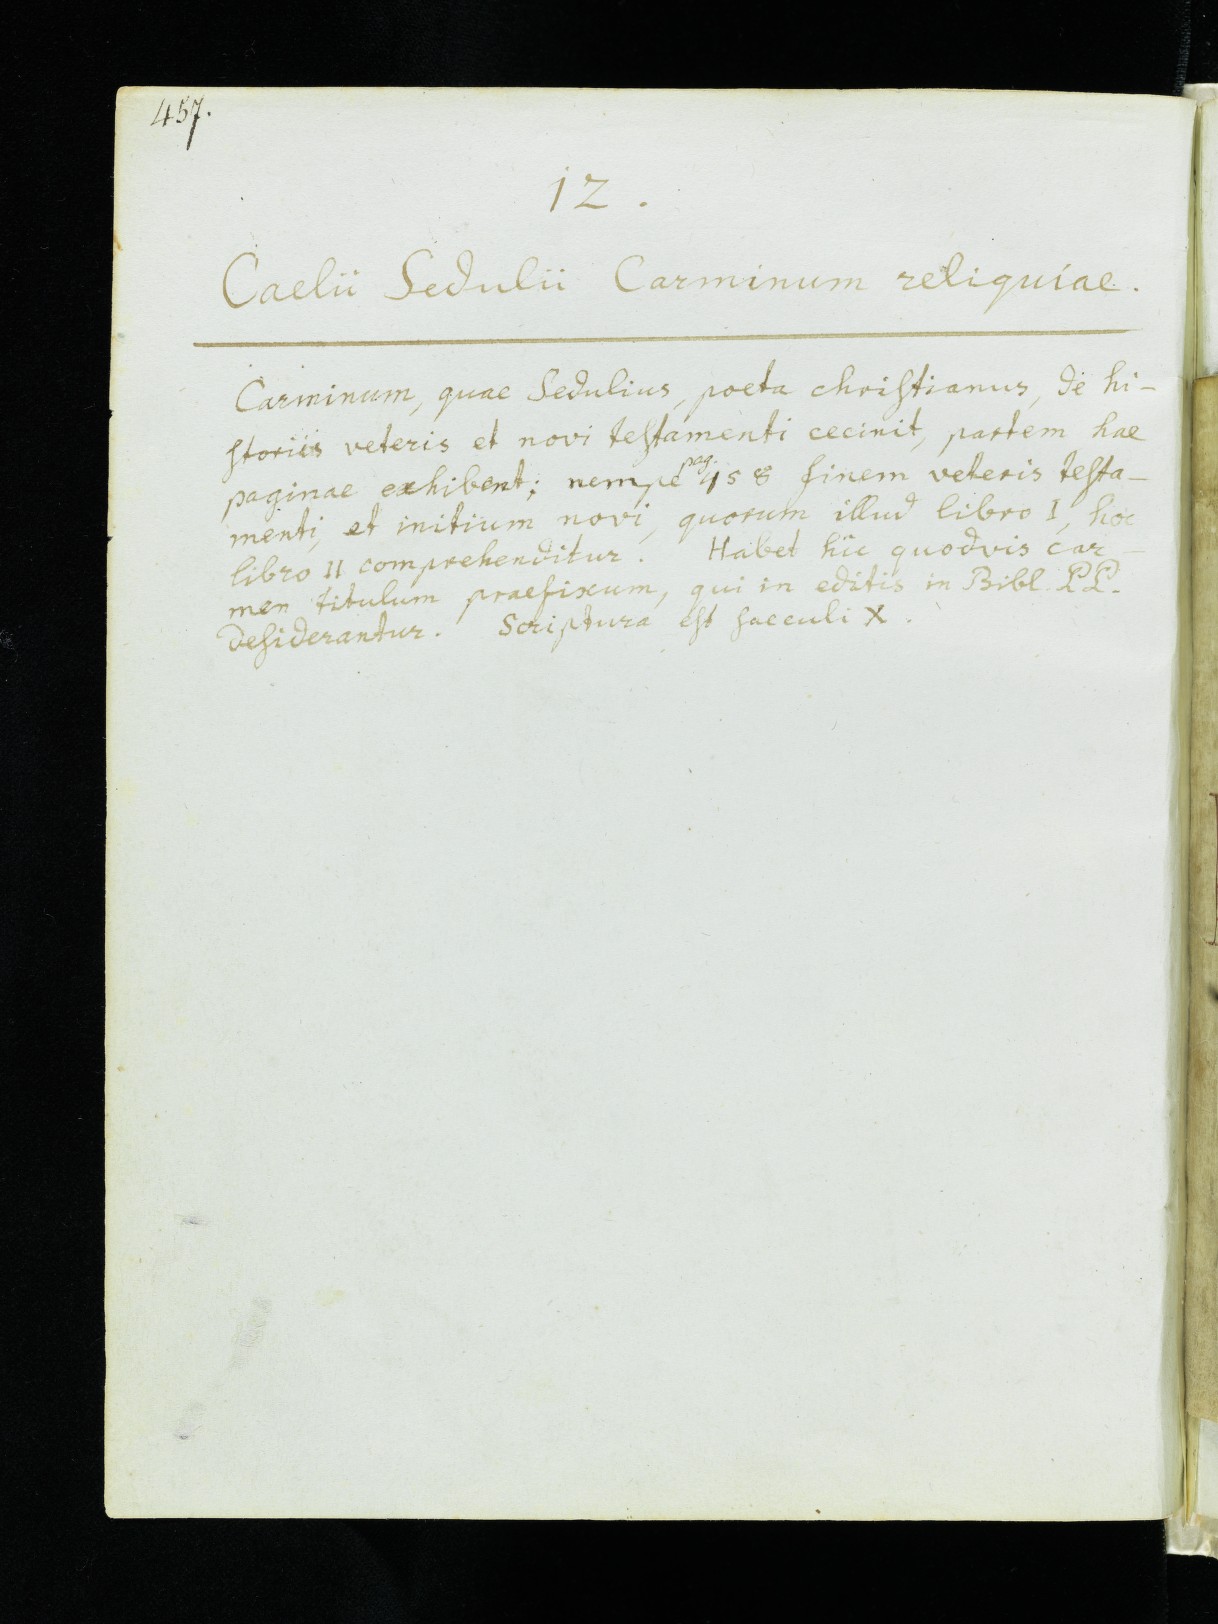 457.
12.
Caelii Sedulii Carminum reliquiae.
Carminum, quae Sedulius, poeta christianus, de hi-
storiis veteris et novi testamenti cecinit, partem hae
paginae exhibent; nempe pag. 458 finem veteris testa-
menti, et initium novi, quorum illud libro I, hoc
libro II comprehenditur. Habet hic quodvis car-
men titulum praefixum, qui in editis in Bibl. PP.
desiderantur. Scriptura est saeculi X.